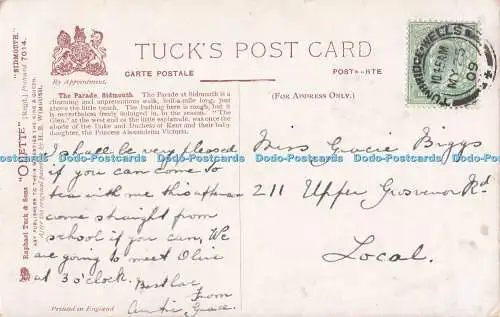 TUCK'S POST CARD
By Appointment.
CARTE POSTALE
(FOR ADDRESS ONLY.)
The Parade, Sidmouth. The Parade at Sidmouth is a
charming and unpretentious walk, half-a-mile long, just
above the little beach. The bathing here is rough, but it
is nevertheless freely indulged in, in season. "The
Glen," at the west end of the little esplanade, was once the
abode of the Duke and Duchess of Kent and their baby
daughter, the Princess Alexandrina Victoria.
Raphael Tuck & Sons "OILETTE" [Regd.] Postcard 7014. "SIDMOUTH."
ART PUBLISHERS TO THEIR MAJESTIES THE KING & QUEEN.
TUNBRIDGE WELLS
11 45 AM
MY
09
I shall be very pleased
if you can come to
tea with me this afternoon
come straight from
school if you can, We
are going to meet Olive
at 3 o'clock. Best love
From
Auntie Grace.
Miss Gracie Biggs
211 Upper Grosvenor Rd
Local.
Printed in England
Dodo-Postcards Dodo-Postcards Dodo-Postcards Dodo-Postcards Dodo-Postcards